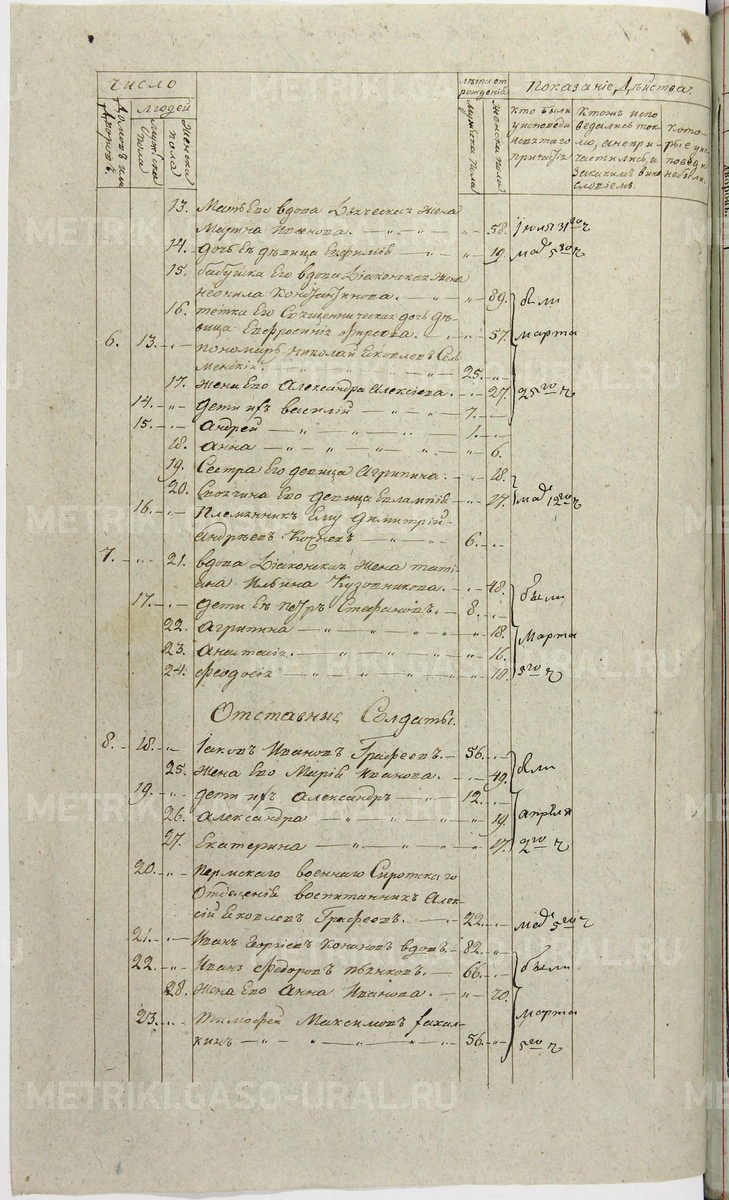 Число
Людей
Лѣта от рожденія
Показаніе Дѣйства.
Домовъ или Дворовъ.
Мужеска пола
Женска пола
Мужска пола
Женска пола
Кто были у исповѣди и святаго причастія
Ктожъ исповѣдались токмо, а непричастились, и за какимъ винословіемъ.
Которые у исповѣди небыли.
13. Мать Его вдова Дьяческая Жена
Марѳа Иванова. — „ — „ 58. Іюля 31го ч
14. дочь Ея дѣвица Евфимія — „ 19. маія 5го ч
15. бабушка Его вдова Діаконская Жена
неонила Константинова. — „ — „ 89. были
16. тетка Его Священническая дочь дѣ-
вица Евфросинія — „ 57. марта
6. 13. „ пономарь Николай Яковлевъ
25. „
17. Жена Его Александра Алексіева. „ 27. 25го ч
14. „ дети ихъ василій — „ — „ 7. „
15. „ Андрей — „ — „ 1. „
18. Анна — „ — „ 6.
19. Сестра Его девица Агрипина. „ 18.
20. Своячина Его девица Евлампія „ 17. маія 12го ч
16. „ Племянникъ Ему Димитрій
Андрѣевъ — „ 6. „
7. „ 21. вдова Діаконская Жена тати-
ана Ильина Кузовникова. „ 48. были
17. „ дети Ея петръ Стефановъ. „ 8. „
22. Агрипина — „ — „ 18. Марта
23. Анастасія. — „ — „ 16.
24. Феодосія — „ — „ 10. 5го ч
Отставные Солдаты.
8. 18. „ Іаковъ Ивановъ Графеевъ. — 56. „ были
25. Жена Его Марія Иванова. — „ 49.
19. „ дети ихъ Александръ — „ 12. „ апрѣля
26. Александра — „ — „ 19.
27. Екатерина — „ — „ 17. 2го ч
20. „ пермскаго военнаго Сиротскаго
Отделенія воспитанникъ Алек-
сій Яковлевъ Графеевъ. — 22. „ маія 5го ч
21. „ Иванъ Георгіевъ Кононовъ вдовъ. 82. „
22. „ Иванъ Федоровъ пьянковъ. — 66. „ были
28. Жена Его Анна Иванова. — „ 70.
марта
23. „ Тимофей Максимовъ
56. „ 5го ч
METRIKI.GASO-URAL.RU